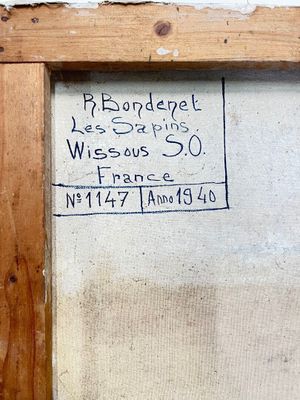 R. Bondenet
Les Sapins
Wissous S.O.
France
Nº1147 Anno 1940